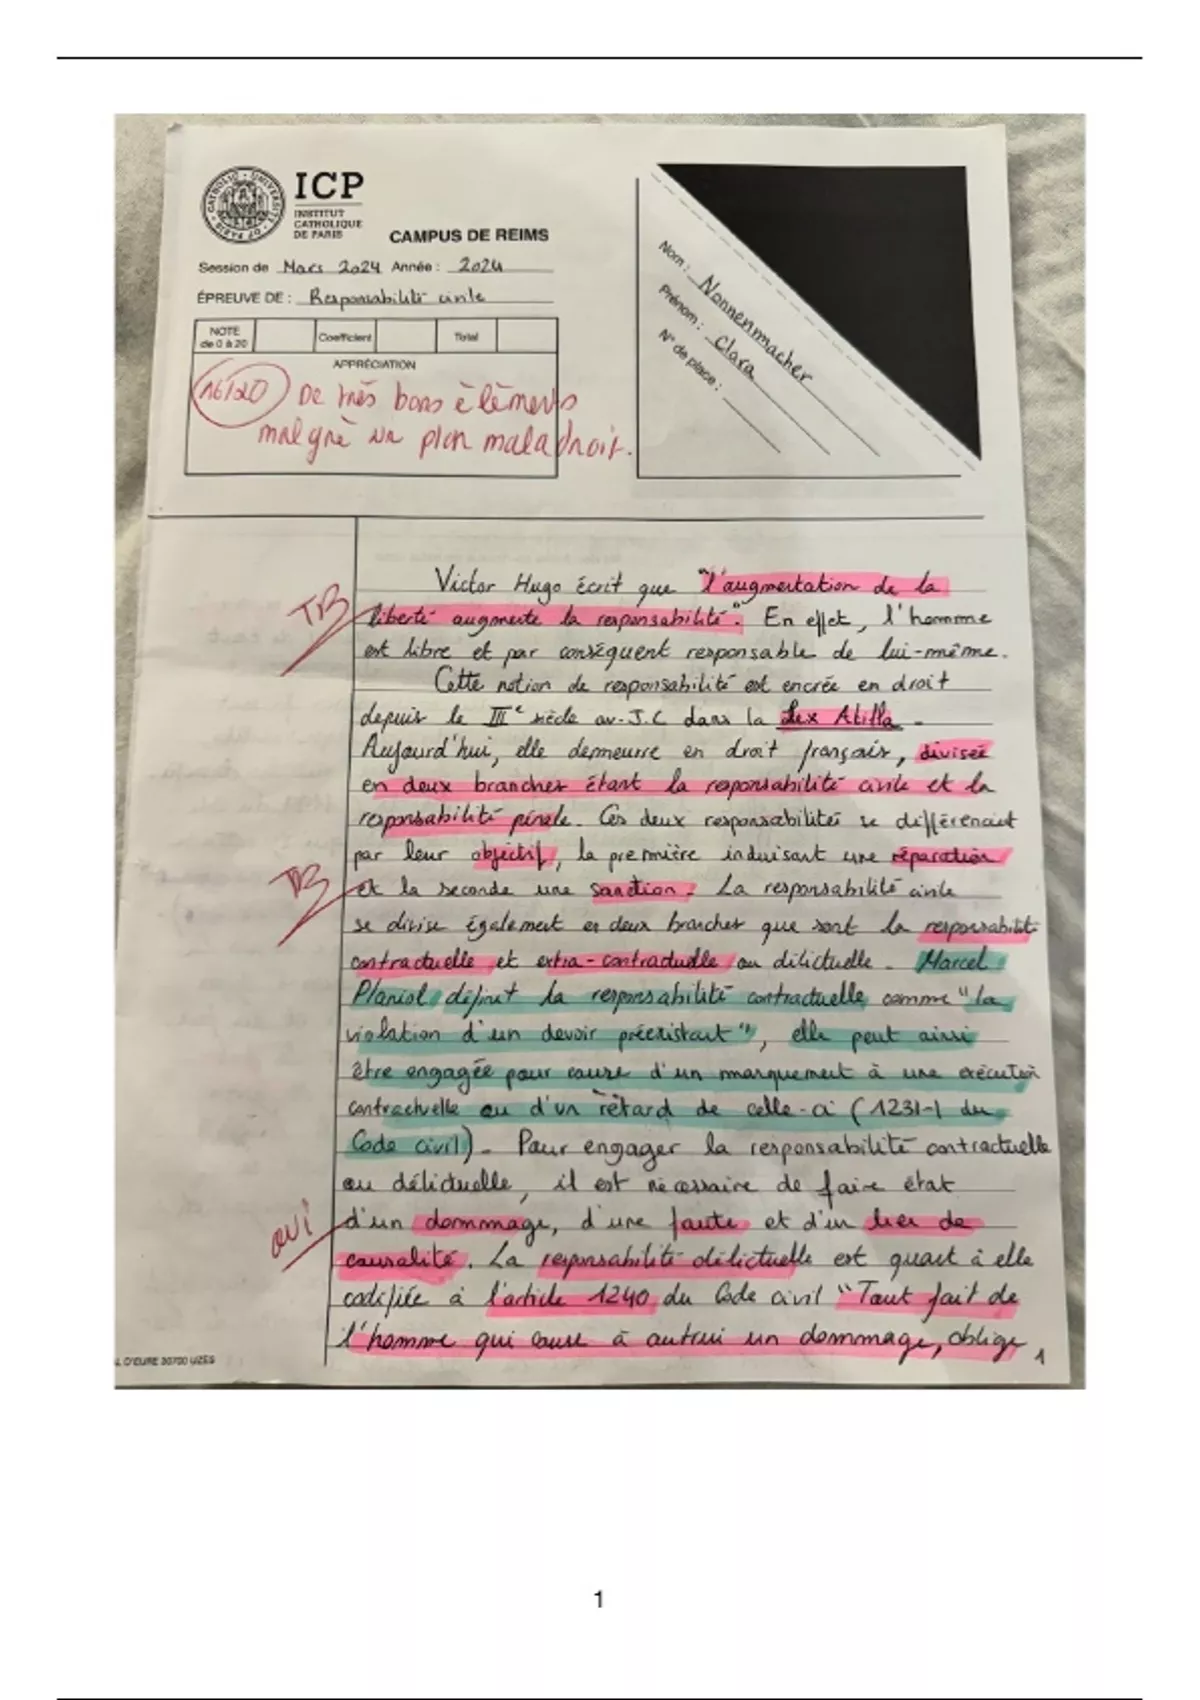 CATHOLIC UNIVERSITY OF PARIS
ICP
INSTITUT
CATHOLIQUE
DE PARIS
CAMPUS DE REIMS
Session de Mars 2024 Année : 2024
ÉPREUVE DE : Responsabilité civile
NOTE
de 0 à 20
Coefficient
Total
APPRÉCIATION
16/20 De très bons élèments
malgré un plan maladroit.
Nom : Nonnenmacher
Prénom : Clara
N° de place :
TB
Victor Hugo écrit que "l'augmentation de la
liberté augmente la responsabilité". En effet, l'homme
est libre et par conséquent responsable de lui-même.
Cette notion de responsabilité est encrée en droit
depuis le IIIe siècle av-J.C dans la Lex Atilla.
Aujourd'hui, elle demeurre en droit français, divisée
en deux branches étant la responsabilité civile et la
responsabilité pénale. Ces deux responsabilités se différencient
par leur objectif, la première induisant une réparation
TB
et la seconde une sanction. La responsabilité civile
se divise également en deux branches que sont la responsabilité
contractuelle et extra-contractuelle ou délictuelle. Marcel
Planiol définit la responsabilité contractuelle comme "la
violation d'un devoir préexistant", elle peut ainsi
être engagée pour cause d'un manquement à une exécution
contractuelle ou d'un retard de celle-ci (1231-1 du
Code civil). Pour engager la responsabilité contractuelle
ou délictuelle, il est nécessaire de faire état
oui
d'un dommage, d'une faute et d'un lien de
causalité. La responsabilité délictuelle est quant à elle
codifiée à l'article 1240 du Code civil "Tout fait de
l'homme qui cause à autrui un dommage, oblige
1
L D'EURE 30700 UZES
1